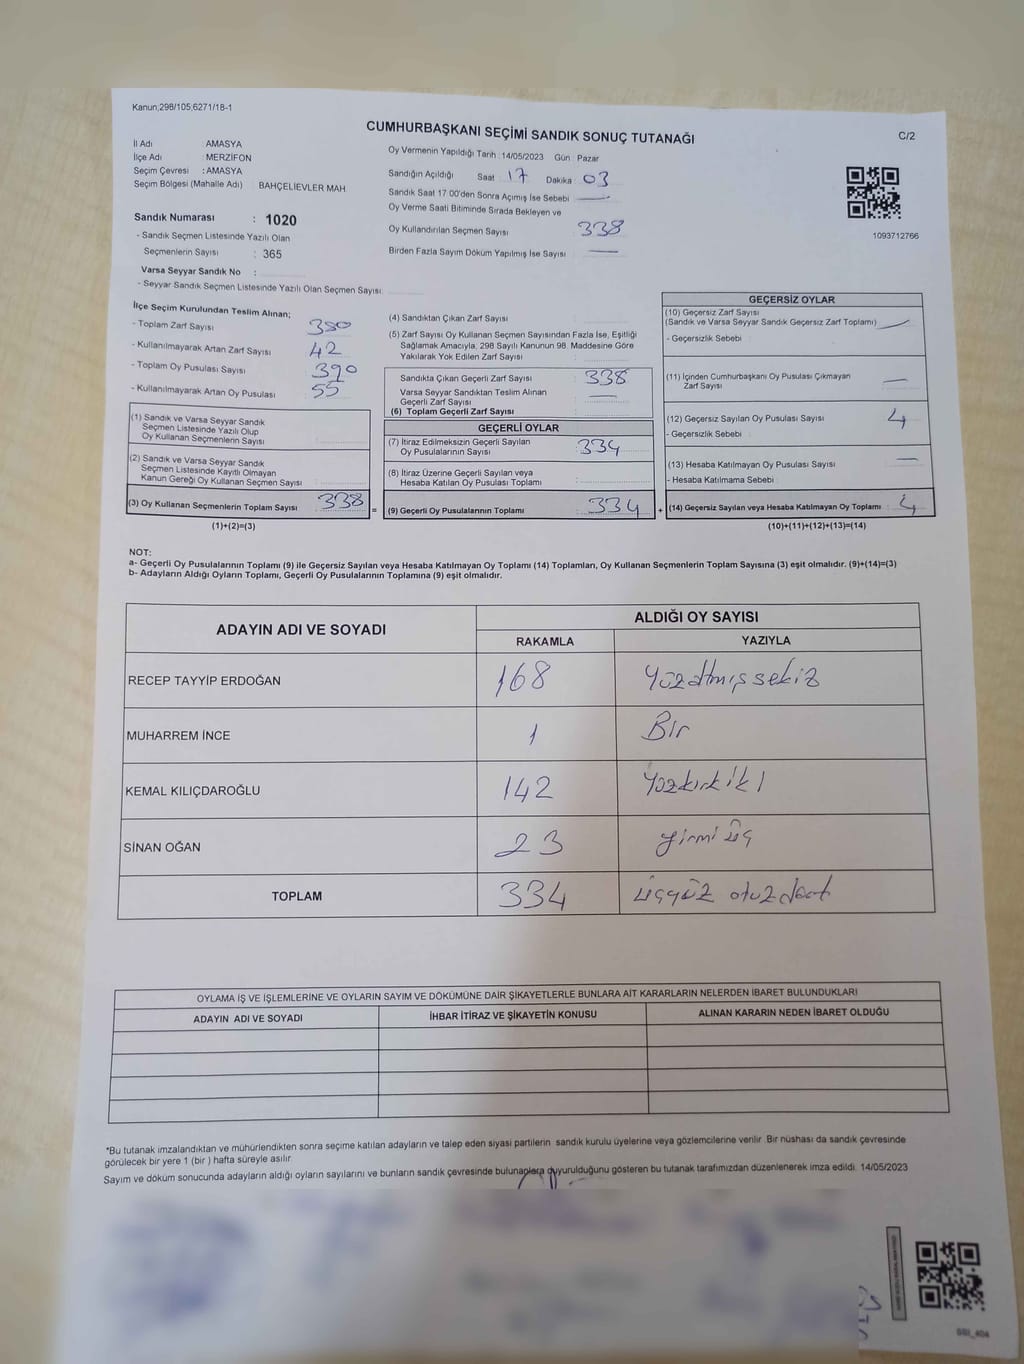 Kanun;298/105;6271/18-1
CUMHURBAŞKANI SEÇİMİ SANDIK SONUÇ TUTANAĞI
C/2
İl Adı : AMASYA
İlçe Adı : MERZİFON
Seçim Çevresi : AMASYA
Seçim Bölgesi (Mahalle Adı) : BAHÇELİEVLER MAH.
Sandık Numarası : 1020
- Sandık Seçmen Listesinde Yazılı Olan
Seçmenlerin Sayısı : 365
Varsa Seyyar Sandık No :
- Seyyar Sandık Seçmen Listesinde Yazılı Olan Seçmen Sayısı:
Oy Vermenin Yapıldığı Tarih : 14/05/2023 Gün : Pazar
Sandığın Açıldığı Saat : 17 Dakika : 03
Sandık Saat 17.00'den Sonra Açılmış İse Sebebi :
Oy Verme Saati Bitiminde Sırada Bekleyen ve
Oy Kullandırılan Seçmen Sayısı : 338
Birden Fazla Sayım Döküm Yapılmış İse Sayısı :
1093712766
İlçe Seçim Kurulundan Teslim Alınan;
- Toplam Zarf Sayısı : 380
- Kullanılmayarak Artan Zarf Sayısı : 42
- Toplam Oy Pusulası Sayısı : 390
- Kullanılmayarak Artan Oy Pusulası : 55
(1) Sandık ve Varsa Seyyar Sandık
Seçmen Listesinde Yazılı Olup
Oy Kullanan Seçmenlerin Sayısı :
(2) Sandık ve Varsa Seyyar Sandık
Seçmen Listesinde Kayıtlı Olmayan
Kanun Gereği Oy Kullanan Seçmen Sayısı :
(3) Oy Kullanan Seçmenlerin Toplam Sayısı : 338 =
(1)+(2)=(3)
(4) Sandıktan Çıkan Zarf Sayısı :
(5) Zarf Sayısı Oy Kullanan Seçmen Sayısından Fazla İse, Eşitliği
Sağlamak Amacıyla, 298 Sayılı Kanunun 98. Maddesine Göre
Yakılarak Yok Edilen Zarf Sayısı :
Sandıkta Çıkan Geçerli Zarf Sayısı : 338
Varsa Seyyar Sandıktan Teslim Alınan
Geçerli Zarf Sayısı :
(6) Toplam Geçerli Zarf Sayısı :
GEÇERLİ OYLAR
(7) İtiraz Edilmeksizin Geçerli Sayılan
Oy Pusulalarının Sayısı : 334
(8) İtiraz Üzerine Geçerli Sayılan veya
Hesaba Katılan Oy Pusulası Toplamı :
(9) Geçerli Oy Pusulalarının Toplamı : 334 +
GEÇERSİZ OYLAR
(10) Geçersiz Zarf Sayısı
(Sandık ve Varsa Seyyar Sandık Geçersiz Zarf Toplamı) :
- Geçersizlik Sebebi :
(11) İçinden Cumhurbaşkanı Oy Pusulası Çıkmayan
Zarf Sayısı :
(12) Geçersiz Sayılan Oy Pusulası Sayısı : 4
- Geçersizlik Sebebi :
(13) Hesaba Katılmayan Oy Pusulası Sayısı :
- Hesaba Katılmama Sebebi :
(14) Geçersiz Sayılan veya Hesaba Katılmayan Oy Toplamı : 4
(10)+(11)+(12)+(13)=(14)
NOT:
a- Geçerli Oy Pusulalarının Toplamı (9) ile Geçersiz Sayılan veya Hesaba Katılmayan Oy Toplamı (14) Toplamları, Oy Kullanan Seçmenlerin Toplam Sayısına (3) eşit olmalıdır. (9)+(14)=(3)
b- Adayların Aldığı Oyların Toplamı, Geçerli Oy Pusulalarının Toplamına (9) eşit olmalıdır.
ADAYIN ADI VE SOYADI
ALDIĞI OY SAYISI
RAKAMLA YAZIYLA
RECEP TAYYİP ERDOĞAN 168 Yüzatmışsekiz
MUHARREM İNCE 1 Bir
KEMAL KILIÇDAROĞLU 142 Yüzkırkiki
SİNAN OĞAN 23 yirmi üç
TOPLAM 334 üçyüz otuzdört
OYLAMA İŞ VE İŞLEMLERİNE VE OYLARIN SAYIM VE DÖKÜMÜNE DAİR ŞİKAYETLERLE BUNLARA AİT KARARLARIN NELERDEN İBARET BULUNDUKLARI
ADAYIN ADI VE SOYADI İHBAR İTİRAZ VE ŞİKAYETİN KONUSU ALINAN KARARIN NEDEN İBARET OLDUĞU
*Bu tutanak imzalandıktan ve mühürlendikten sonra seçime katılan adayların ve talep eden siyasi partilerin sandık kurulu üyelerine veya gözlemcilerine verilir. Bir nüshası da sandık çevresinde
görülecek bir yere 1 (bir ) hafta süreyle asılır.
Sayım ve döküm sonucunda adayların aldığı oyların sayılarını ve bunların sandık çevresinde bulunanlara duyurulduğunu gösteren bu tutanak tarafımızdan düzenlenerek imza edildi. 14/05/2023